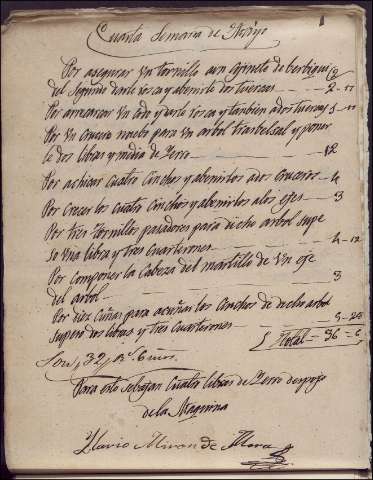 Cuarta Semana de Mayo
Por asegurar un tornillo aun cojinete de berbiqui
del Segundo darle rosca y abenirle dos tuercas 2-17
Por arrancar un ado y darle rosca y tanbien ados tuercas 1-17
Por un crucero nuebo para un arbol trasbelsal y poner
le dos libras y media de Zerro 12
Por achicar Cuatro Cinchos y abenirlos ados Cruceros 4
Por Crecer los cuatro Cinchos y abenirlos alos ejes 3
Por tres Tornillos pasadores para dicho arbol supe
so una libra y tres cuarterones
Por componer la Cabeza del martillo de un eje
del arbol 3
Por diez Cuñas para acuñar los Cinchos de dicho arbol
supeso dos libras y tres Cuarterones
Total = 36 = 6
Son 32
Para esto sebajan Cuatro libras de Zerro despojo
de la Maquina
de Mora